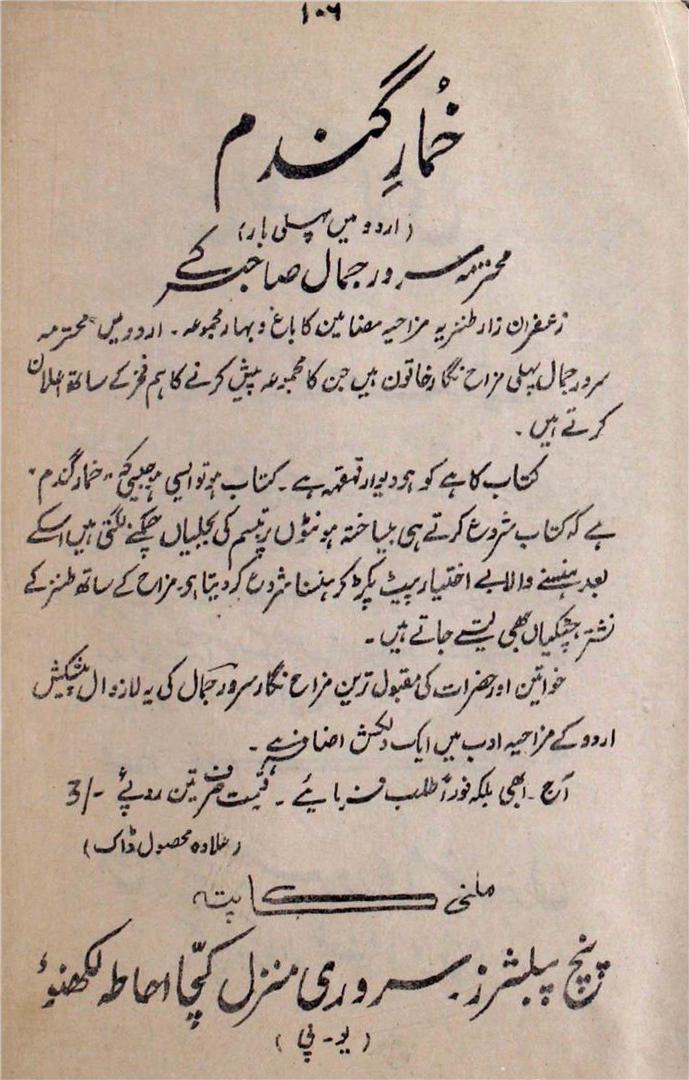 ۱۰۶
خُمارِ گندم
(اردو میں پہلی بار)
محترمہ سرور جمال صاحبہ کے
زعفران زار طنزیہ مزاحیہ مضامین کا باغ و بہار مجموعہ۔ اردو میں محترمہ
سرور جمال پہلی مزاح نگار خاتون ہیں جن کا مجموعہ پیش کرنے کا ہم فخر کے ساتھ اعلان
کرتے ہیں۔
کتاب کا ہے کو ہو دیوار قہقہہ ہے۔ کتاب ہو تو ایسی ہو جیسی کہ "خمار گندم"
ہے کہ کتاب شروع کرتے ہی بیساختہ ہونٹوں پر تبسم کی بجلیاں چمکنے لگتی ہیں اسکے
بعد ہنسنے والا بے اختیار پیٹ پکڑ کر ہنسنا شروع کر دیتا ہو۔ مزاح کے ساتھ طنز کے
نشتر چٹکیاں بھی لیتے جاتے ہیں۔
خواتین اور حضرات کی مقبول ترین مزاح نگار سرور جمال کی یہ لازوال پیشکش
اردو کے مزاحیہ ادب میں ایک دلکش اضافہ ہے۔
آج۔ ابھی بلکہ فوراً طلب فرمایئے۔ قیمت صرف تین روپئے ‎3/-
(علاوہ محصول ڈاک)
ملنے کا پتہ
پنچ پبلشرز۔ سروری منزل کچّا احاطہ لکھنؤ
(یو۔ پی)